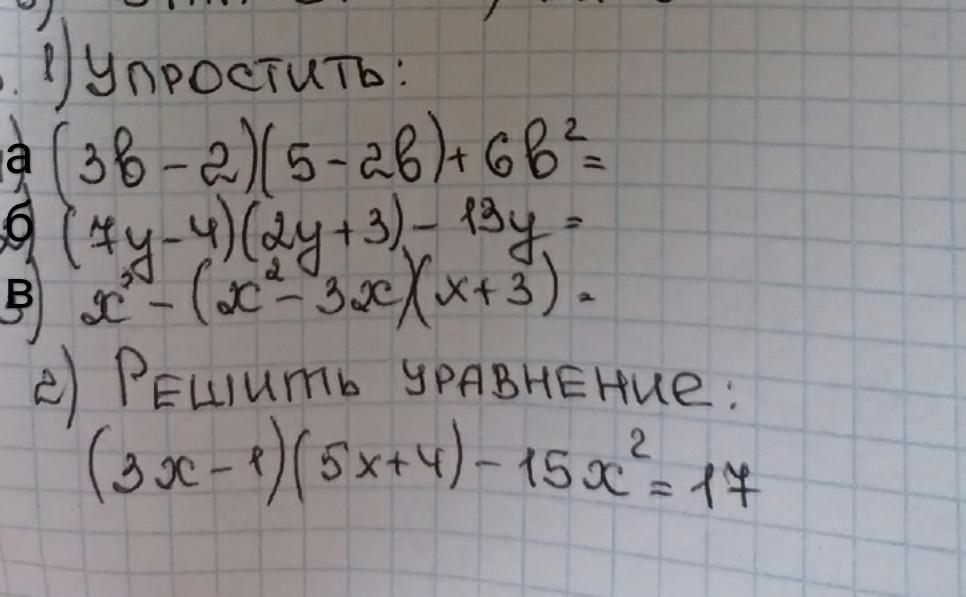 1) Упростить:
а) (3в - 2)(5 - 2в) + 6в² =
б) (7y - 4)(2y + 3) - 13y =
в) x³ - (x² - 3x)(x + 3) =
2) Решить уравнение:
(3x - 1)(5x + 4) - 15x² = 17